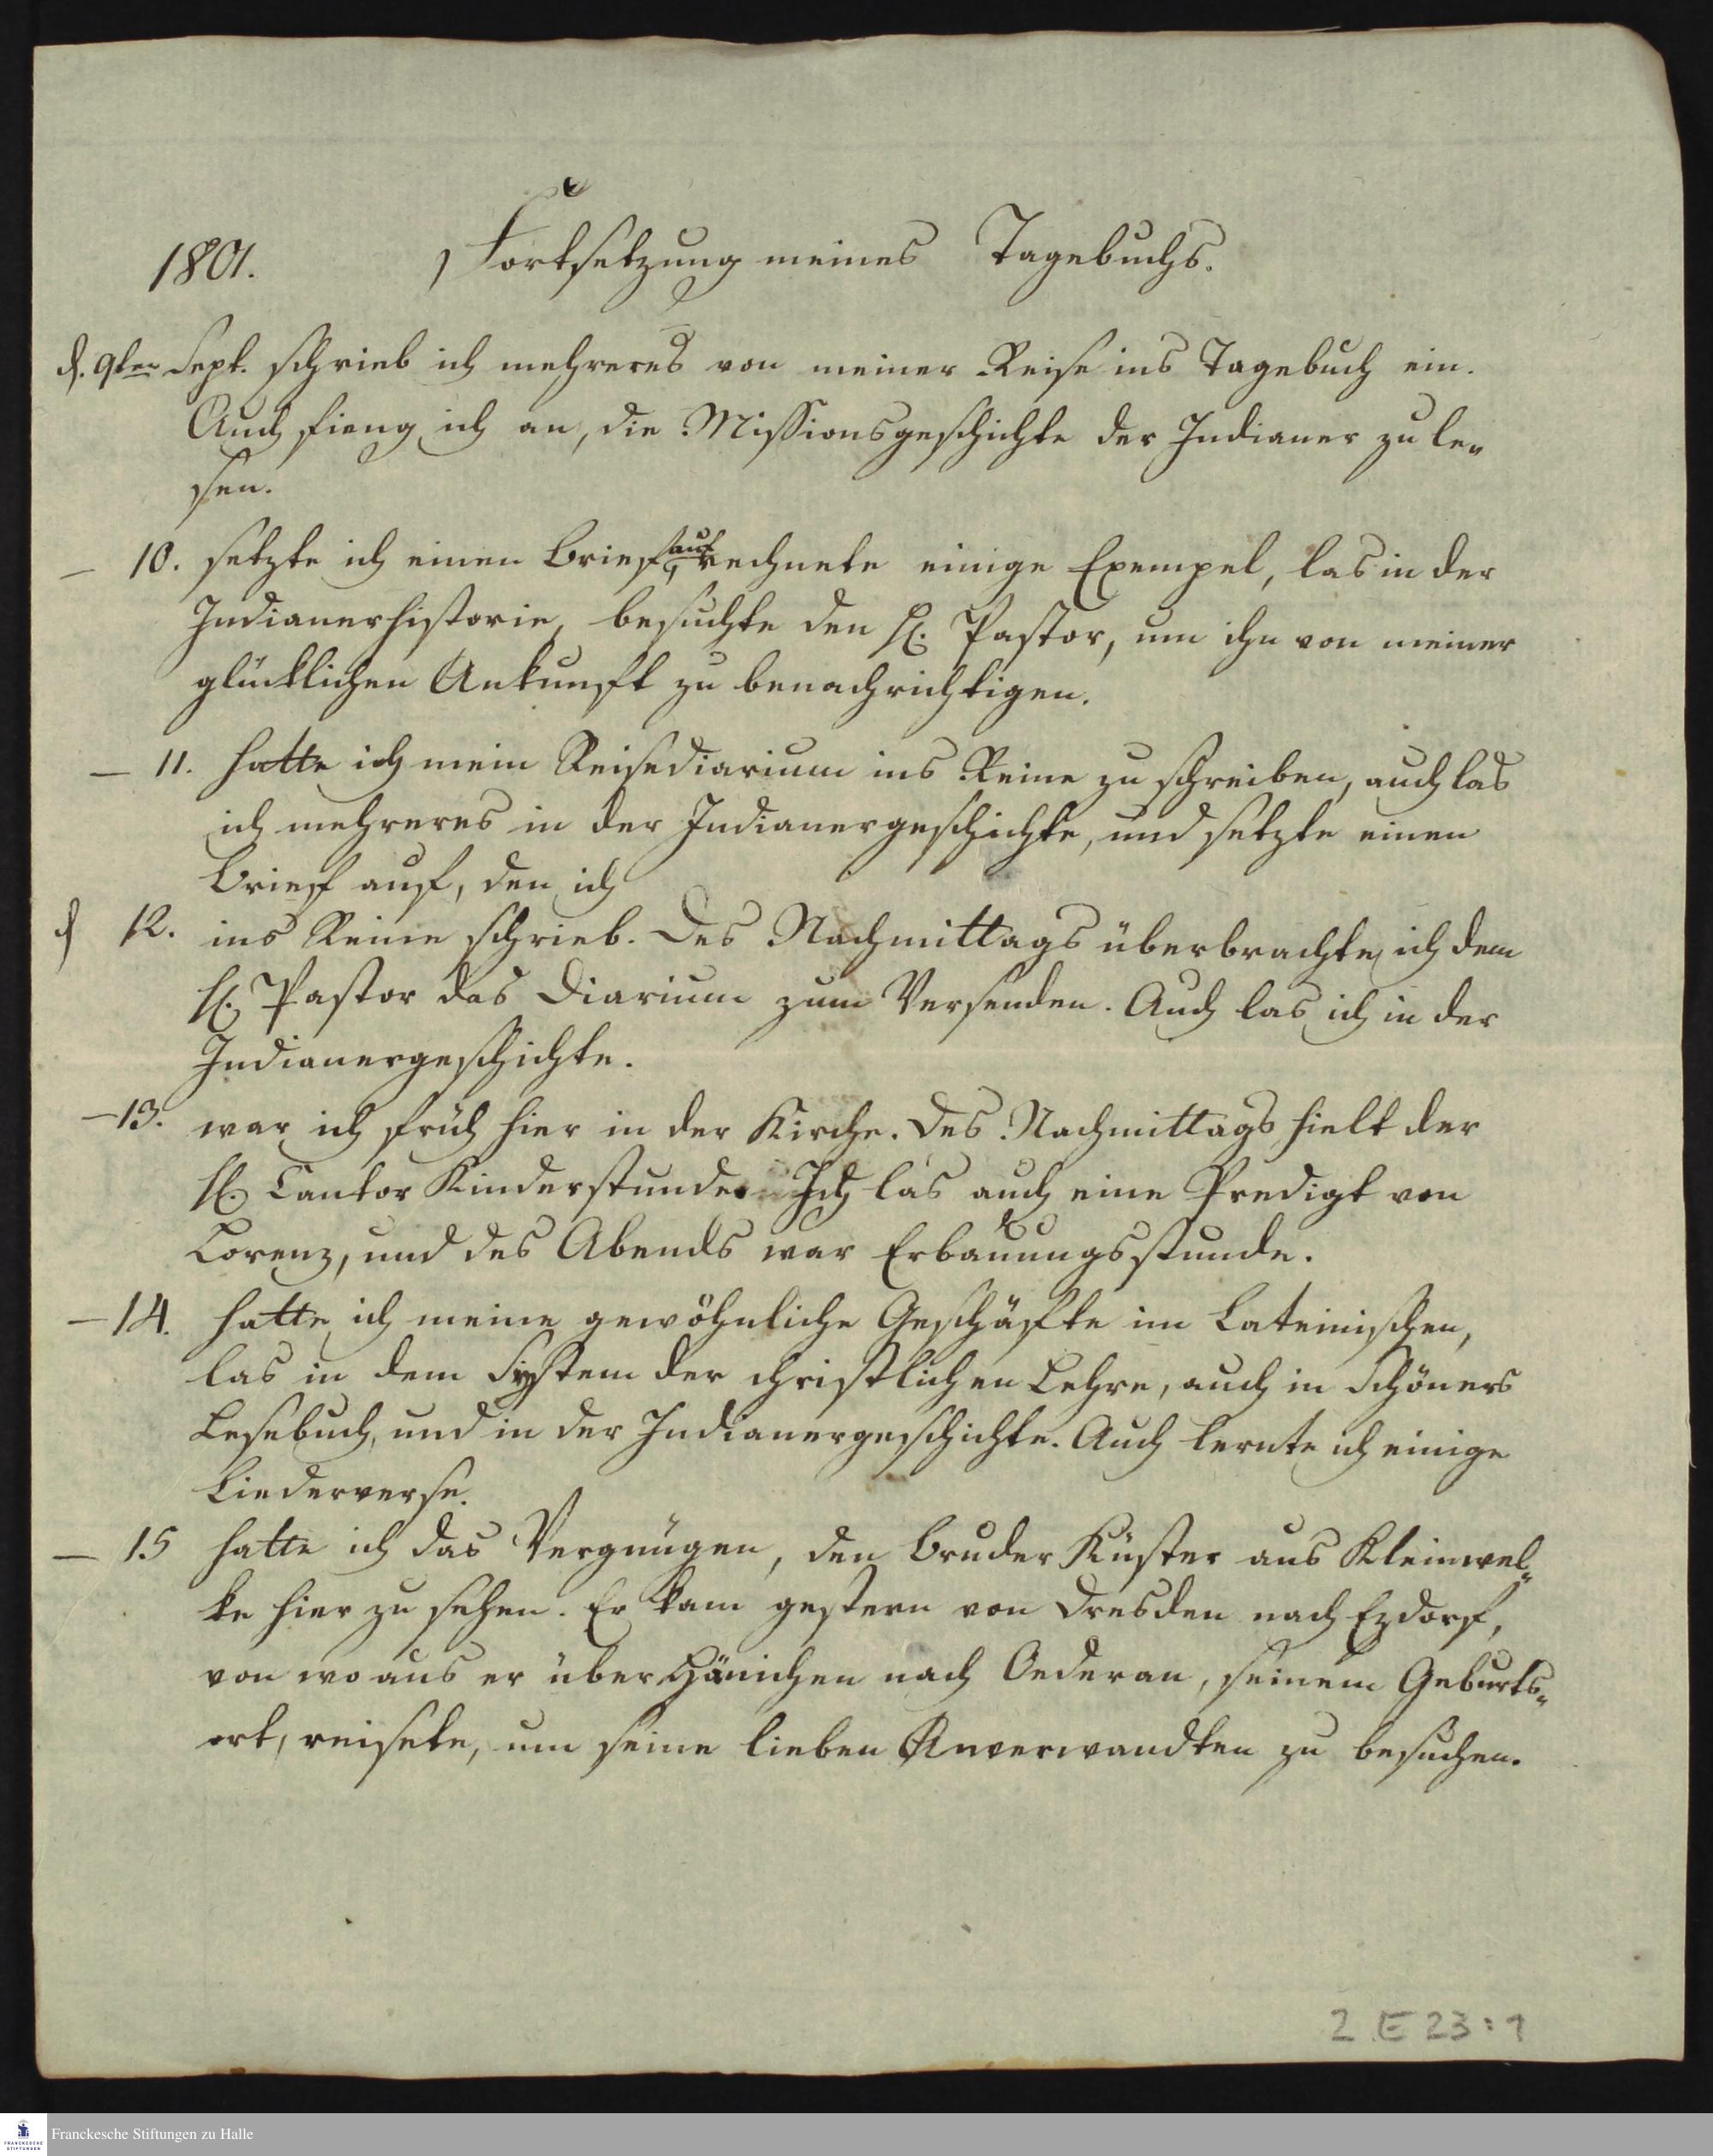 1801. Fortsetzung meines Tagebuchs.
d. 9ten Sept. schrieb ich mehreres von meiner Reise ins Tagebuch ein.
Auch fieng ich an, die Missionsgeschichte der Indianer zu le-
sen.
— 10. setzte ich einen Brief auf, rechnete einige Exempel, las in der
Indianerhistorie, besuchte den H. Pastor, um ihn von meiner
glücklichen Ankunft zu benachrichtigen.
— 11. hatte ich mein Reisediarium ins Reine zu schreiben, auch las
ich mehreres in der Indianergeschichte, und setzte einen
Brief auf, den ich
d 12. ins Reine schrieb. Des Nachmittags überbrachte ich dem
H. Pastor das Diarium zum Versenden. Auch las ich in der
Indianergeschichte.
— 13. war ich früh hier in der Kirche. Des Nachmittags hielt der
H. Cantor Kinderstunde. Ich las auch eine Predigt von
Lorenz, und des Abends war Erbauungsstunde.
— 14. hatte ich meine gewöhnliche Geschäfte im Lateinischen,
las in dem System der christlichen Lehre, auch in Schöners
Lesebuch, und in der Indianergeschichte. Auch lernte ich einige
Liederverse.
— 15 hatte ich das Vergnügen, den Bruder Küster aus Kleinwel-
ke hier zu sehen. Er kam gestern von Dresden nach Ezdorf,
von wo aus er über Hänichen nach Oederan, seinem Geburts-
ort, reisete, um seine lieben Anverwandten zu besuchen.
2 E 23:1
Franckesche Stiftungen zu Halle
FRANCKESCHE
STIFTUNGEN